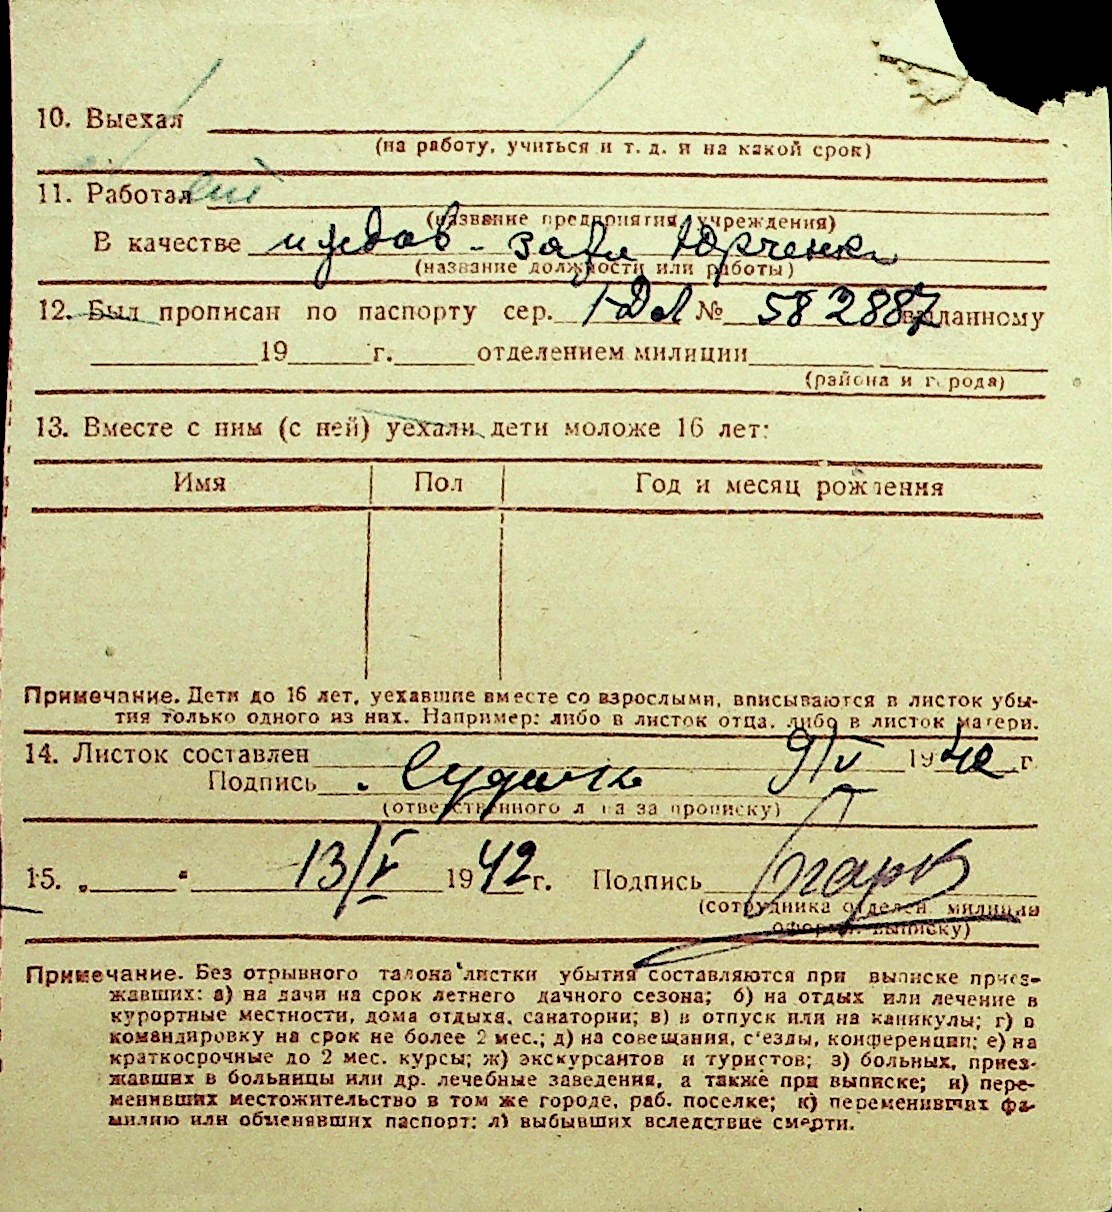 10. Выехал
(на работу, учиться и т. д. и на какой срок)
11. Работал
(название предприятия, учреждения)
В качестве иждив-
(название должности или работы)
12. Был прописан по паспорту сер. № 582887 выданному
19 г. отделением милиции
(района и города)
13. Вместе с ним (с ней) уехали дети моложе 16 лет:
Имя Пол Год и месяц рождения
Примечание. Дети до 16 лет, уехавшие вместе со взрослыми, вписываются в листок убы-
тия только одного из них. Например: либо в листок отца, либо в листок матери.
14. Листок составлен 9/V 1942 г.
Подпись
(ответственного лица за прописку)
15. „ “ 13/V 1942 г. Подпись
(сотрудника отделен. милиции
оформ. выписку)
Примечание. Без отрывного талона листки убытия составляются при выписке приез-
жавших: а) на дачи на срок летнего дачного сезона; б) на отдых или лечение в
курортные местности, дома отдыха, санатории; в) в отпуск или на каникулы; г) в
командировку на срок не более 2 мес.; д) на совещания, с'езды, конференции; е) на
краткосрочные до 2 мес. курсы; ж) экскурсантов и туристов; з) больных, приез-
жавших в больницы или др. лечебные заведения, а также при выписке; и) пере-
менивших местожительство в том же городе, раб. поселке; к) переменивших фа-
милию или обменявших паспорт; л) выбывших вследствие смерти.